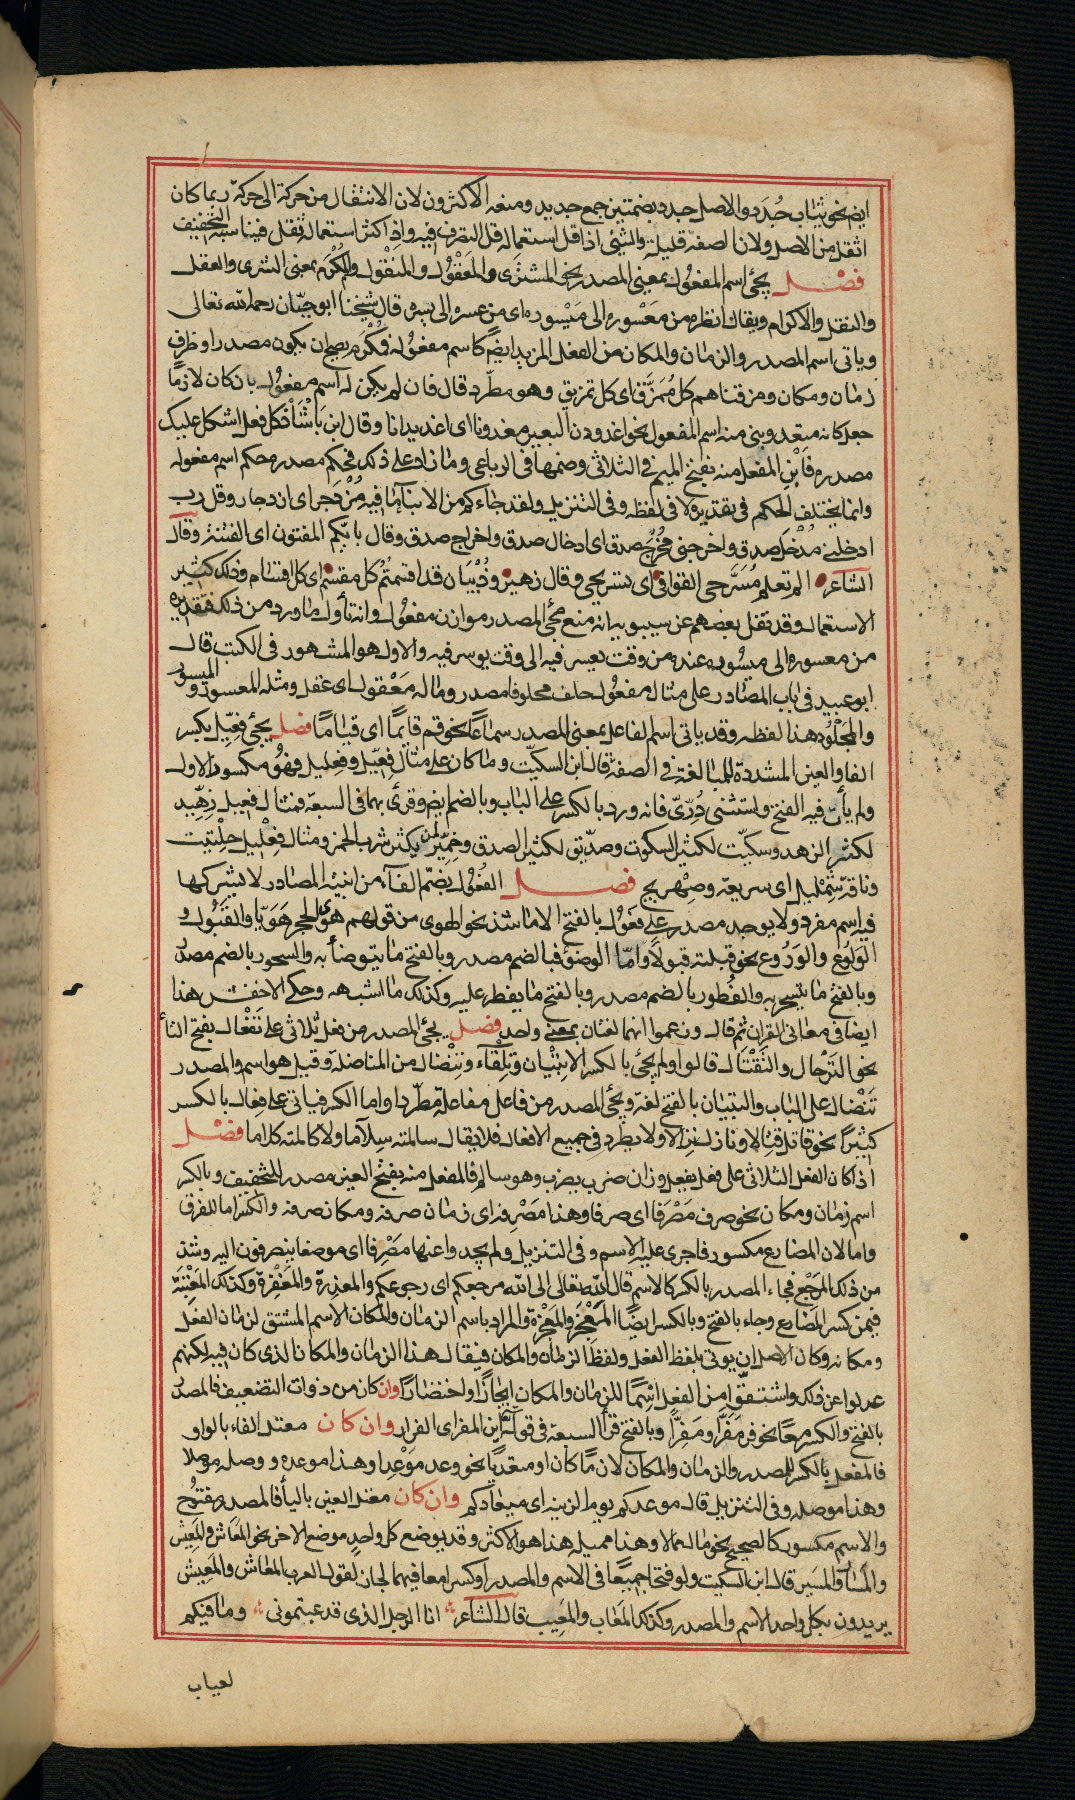 ايض نحو ثياب جُدَد والاصل جدد بضمتين جمع جديد ومنعه الاكثرون لان الانتقال من حركة الى حركة ربما كان
اثقل من الاصل ولان الصفة قليلة والشئ اذا قل استعماله قل التصرف فيه واذا كثر استعماله ثقل فيناسبه التخفيف
فصل يجئ اسم المفعول بمعنى المصدر نحو المشترى والمعقول والمنقول والمُكْرَم بمعنى الشرى والعقل
والنقل والاكرام ويقال انظره من معسوره الى ميسوره اى من عسره الى يسره قال شيخنا ابو حيّان رحمه الله تعالى
وياتى اسم المصدر والزمان والمكان من الفعل المزيد ايض كاسم مفعوله فمُكْرم يصح ان يكون مصدرا وظرف
زمان ومكان ومزقناهم كل مُمَزَّق اى كل تمزيق وهو مطّرد قال فان لم يكن له اسم مفعول بان كان لازمًا
جعل كانه متعد وبنى منه اسم المفعول نحو اغدودن البعير مغدودنا اى اغديدانا وقال ابن بابشاذ كل فعل اشكل عليك
مصدره فابن المفعل منه بفتح الميم فى الثلاثى وضمها فى الرباعى وما زاد على ذلك فحكم مصدره حكم اسم مفعوله
وانما يختلف الحكم فى تقديره لا فى لفظه وفى التنزيل ولقد جاءكم من الانبآء ما فيه مُزْدَجر اى ازدجار وقل رب
ادخلنى مُدْخَل صدق واخرجنى مُخْرَج صدق اى ادخال صدق واخراج صدق وقال بايّكم المفتون اى الفتنة وقال
الشاعر الم تعلم مُسَرَّحى القوافى اى تسريحى وقال زهير وذُبْيَان قد اقسمتُم كل مقسم اى كل اقسام وذلك كثير
الاستعمال وقد نقل بعضهم عن سيبويه انه منع مجئ المصدر موازن مفعول وانه تأول ما ورد من ذلك فتقديره
من معسوره الى ميسوره عنده من وقت يعسر فيه الى وقت يوسر فيه والاول هو المشهور فى الكتب قال
ابو عبيد فى باب المصادر على مثال مفعول حلف محلوفا مصدر وماله مَعْقول اى عقل ومثله المعسور والميسور
والمجلود هذا لفظه وقد ياتى اسم الفاعل بمعنى المصدر سماعًا نحو قم قايمًا اى قيامًا فصل يجئ فِعّيل بكسر
الفا والعين المشددة للمبالغة فى الصفة قال ابن السكيت وما كان على مثال فِعّيل وفِعليل فهو مكسور الاول
ولم يأت فيه الفتح واستثنى دُرّىّ فانه ورد بالكسر على الباب وبالضم ايض وقرئ بهما فى السبعة فمثال فِعيل زِهّيد
لكثير الزهد وسكيّت لكثير السكوت وصدّيق لكثير الصدق وخِمّير لمن يكثر شرب الخمر ومثال فِعْليل حِلْتيت
وناقة شِمْليل اى سريعة وصِهريج فصل الفُعُول بضمّ الفآء من ابنية المصادر لا يشركها
فيه اسم مفرد ولا يوجد مصدر على فَعُول بالفتح الا ما شذ نحو الهوى من قولهم هوى الحجر هَوَيّا والقَبُول و
الوَلُوع والوَزُوع نحو قبلته قبولًا وامّا الوضوء فبالضم مصدر وبالفتح ما يتوضأ به والسحور بالضم مصدر
وبالفتح ما يتسحر به والفُطور بالضم مصدر وبالفتح ما يفطر عليه وكذلك ما اشبهه وحكى الاخفش هذا
ايضا فى معانى القران ثم قال وزعموا انهما لغتان بمعنى واحد فصل يجئ المصدر من فعل ثلاثى على تَفْعال بفتح التأ
نحو التَرحال والتَقتال قالوا ولم يجئ بالكسر الا تِبْيان وتِلقآء وتِنْضال من المناضلة وقيل هو اسم والمصدر
تَنْضال على الباب والتبيان بالفتح لغة ويجئ المصدر من فاعل مفاعلة مطّردا واما الكر فياتى على فِعال بالكسر
كثيرًا نحو قاتل قتالا ونازل نزالا ولا يطرد فى جميع الافعال فلا يقال سالمته سلاما ولا كالمته كلاما فصل
اذا كان الفعل الثلاثى على فعل يفعل وزان ضرب يضرب وهو سالم فالمفعل منه بفتح العين مصدر للتخفيف وبالكسر
اسم زمان ومكان نحو صرف مَصْرَفا اى صرفا وهذا مَصْرِفه اى زمان صرفه ومكان صرفه والكسر اما للفرق
واما لان المضارع مكسور فاجرى عليه الاسم وفى التنزيل ولم يجدوا عنها مَصْرِفا اى موضعا ينصرفون اليه وشذ
من ذلك المَرْجع فجاء المصدر بالكسر كالاسم قال الله تعالى الى الله مرجعكم اى رجوعكم والمعذرة والمَغْفِرة وكذلك المَعْتِبَة
فيمن كسر المضارع وجاء بالفتح وبالكسر ايضًا المعجز والمعجزة والمراد باسم الزمان والمكان الاسم المشتق لزمان الفعل
ومكانه وكان الاصل ان يوتى بلفظ الفعل ولفظ الزمان والمكان فيقال هذا الزمان والمكان الذى كان فيه لكنهم
عدلوا عن ذلك واشتقّوا من الفعل اسمًا للزمان والمكان ايجازًا واختصارًا وان كان من ذوات التضعيف فالمصدر
بالفتح والكسر معًا نحو فر مَفَرًّا ومَفِرًّا وبالفتح قرأ السبعة فى قوله اين المفر اى الفرار وان كان معتل الفاء بالواو
فالمفعل بالكسر للمصدر والزمان والمكان لازمًا كان او متعديًا نحو وعد مَوْعِدا وهذا موعده ووصله موصلا
وهذا موصله وفى التنزيل قال موعدكم يوم الزينه اى ميعادكم وان كان معتل العين بالياء فالمصدر مفتوح
والاسم مكسور كالصحيح نحو مال ممالا وهذا مميله هذا هو الاكثر وقد يوضع كل واحد موضع الاخر نحو المَعاش والمعيش
والمسار والمسير قال ابن السكيت ولو فتحا جميعًا فى الاسم والمصدر او كسرا معا فيهما لجاز لقول العرب المعاش والمعيش
يريدون بكل واحد الاسم والمصدر وكذلك المَعاب والمَعيب قال الشاعر انا الرجل الذى قد عبتمونى وما فيكم
لعياب